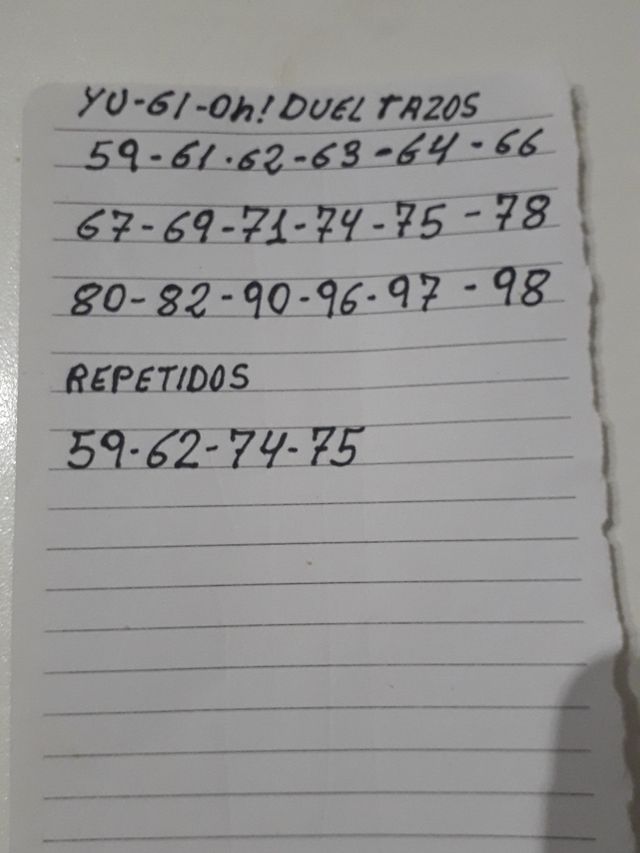 YU-GI-Oh! DUEL TAZOS
59-61.62-63-64-66
67-69-71-74-75-78
80-82-90-96-97-98
REPETIDOS
59-62-74-75